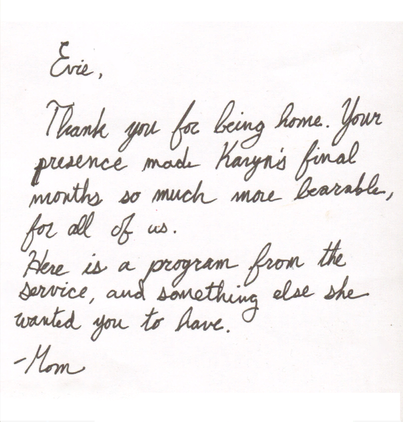 Evie,
Thank you for being home. Your
presence made Karyn's final
months so much more bearable,
for all of us.
Here is a program from the
service, and something else she
wanted you to have.
-Mom